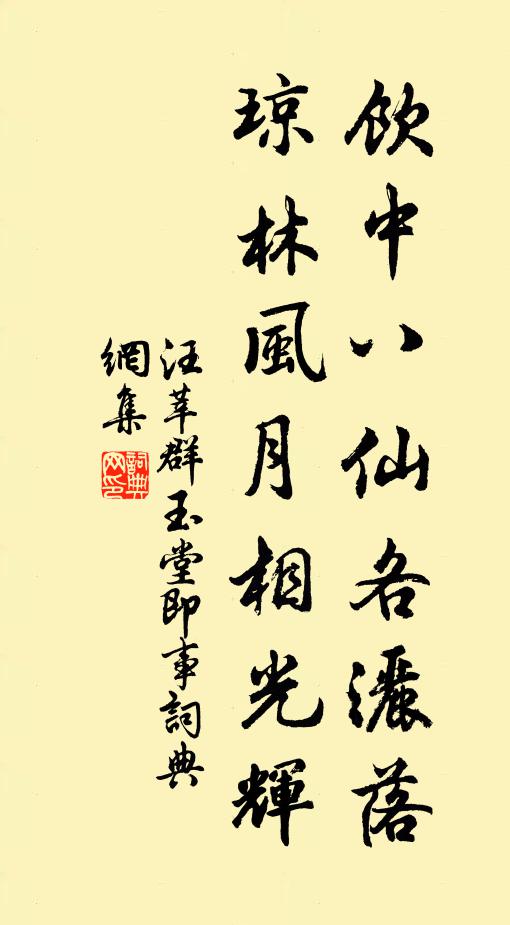 飲中八仙各灑落
琼林風月相光輝
汪莘群玉堂即事詞典
網集
詞典
网印